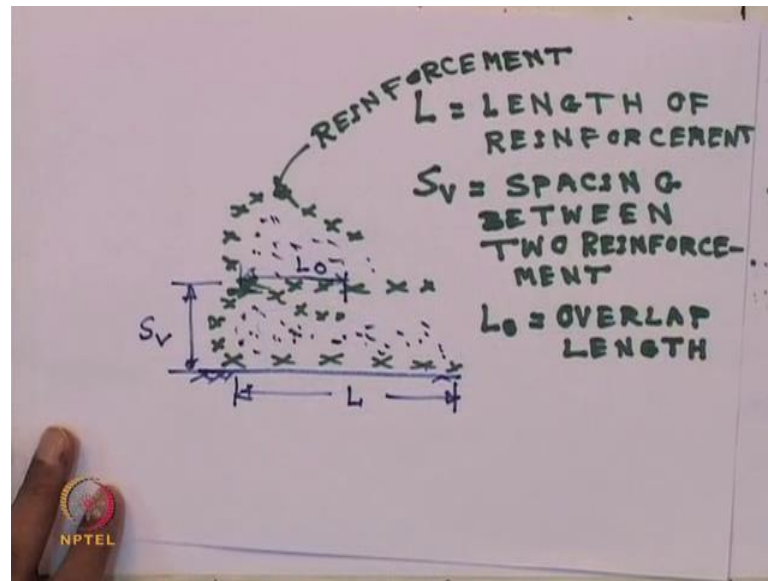 REINFORCEMENT
L = LENGTH OF
REINFORCEMENT
Sv = SPACING
BETWEEN
TWO REINFORCE-
MENT
Lo = OVERLAP
LENGTH
Lo
Sv
L
NPTEL